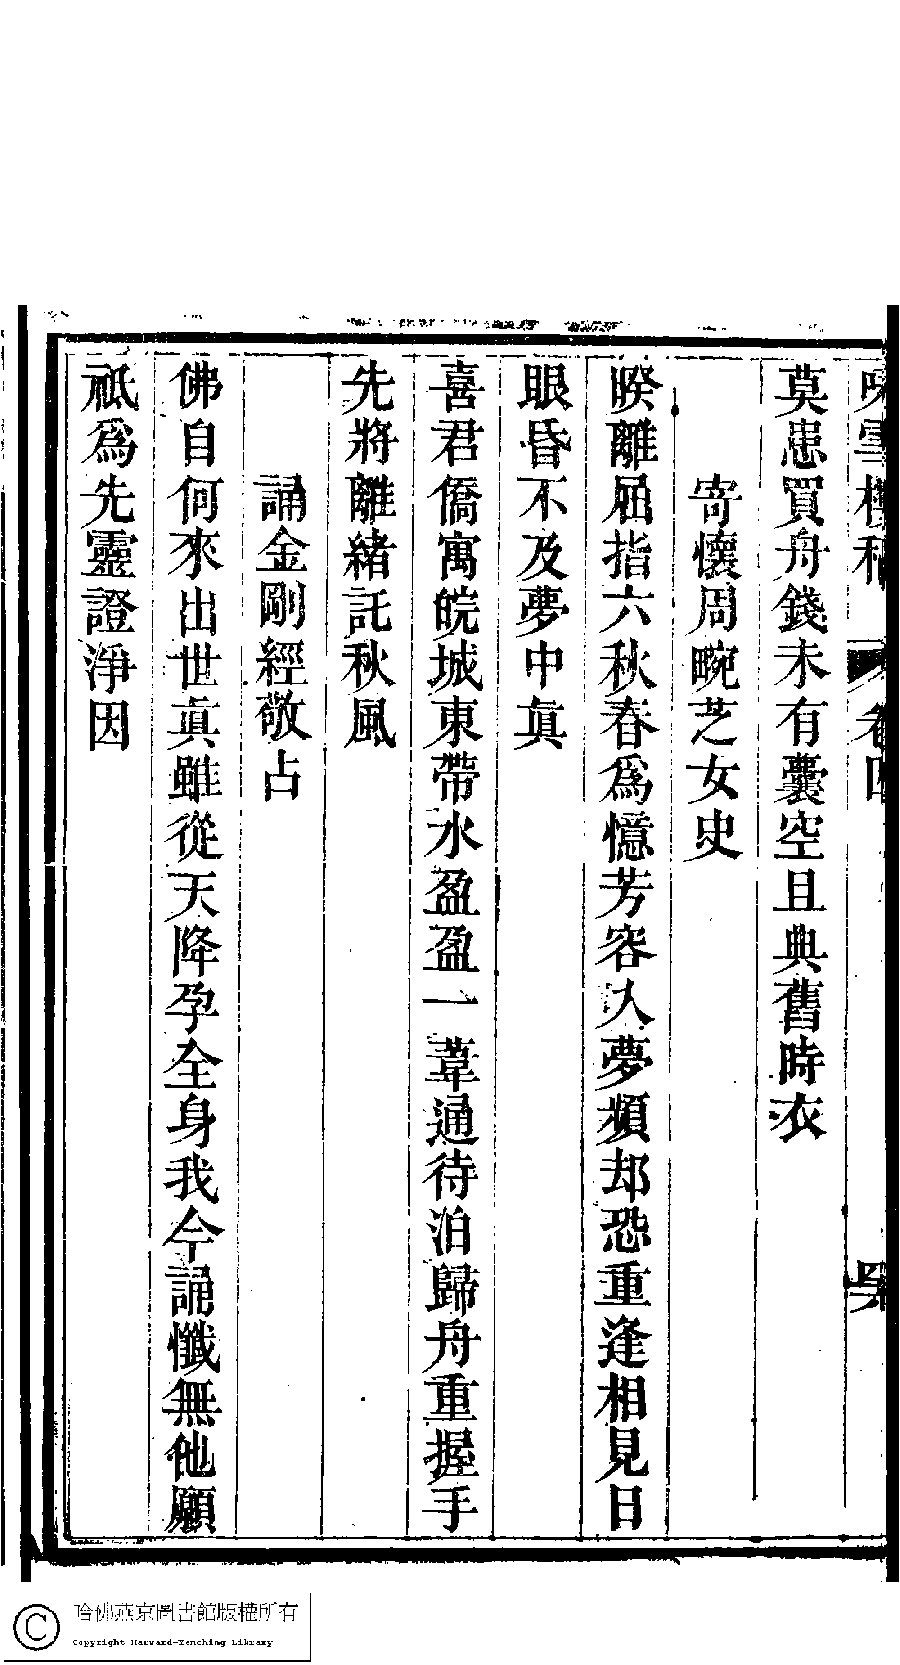 雪樓稿 卷四
莫患買舟錢未有囊空且典舊時衣
寄懷周畹芝女史
睽離屈指六秋春爲憶芳容人夢頻却恐重逢相見日
眼昏不及夢中眞
喜君僑寓皖城東帶水盈盈一葦通待泊歸舟重握手
先將離緒託秋風
誦金剛經敬占
佛自何來出世眞雖從天降孕全身我今誦懺無他願
祇爲先靈證淨因
哈佛燕京圖書館版權所有
Copyright Harvard-Yenching Library